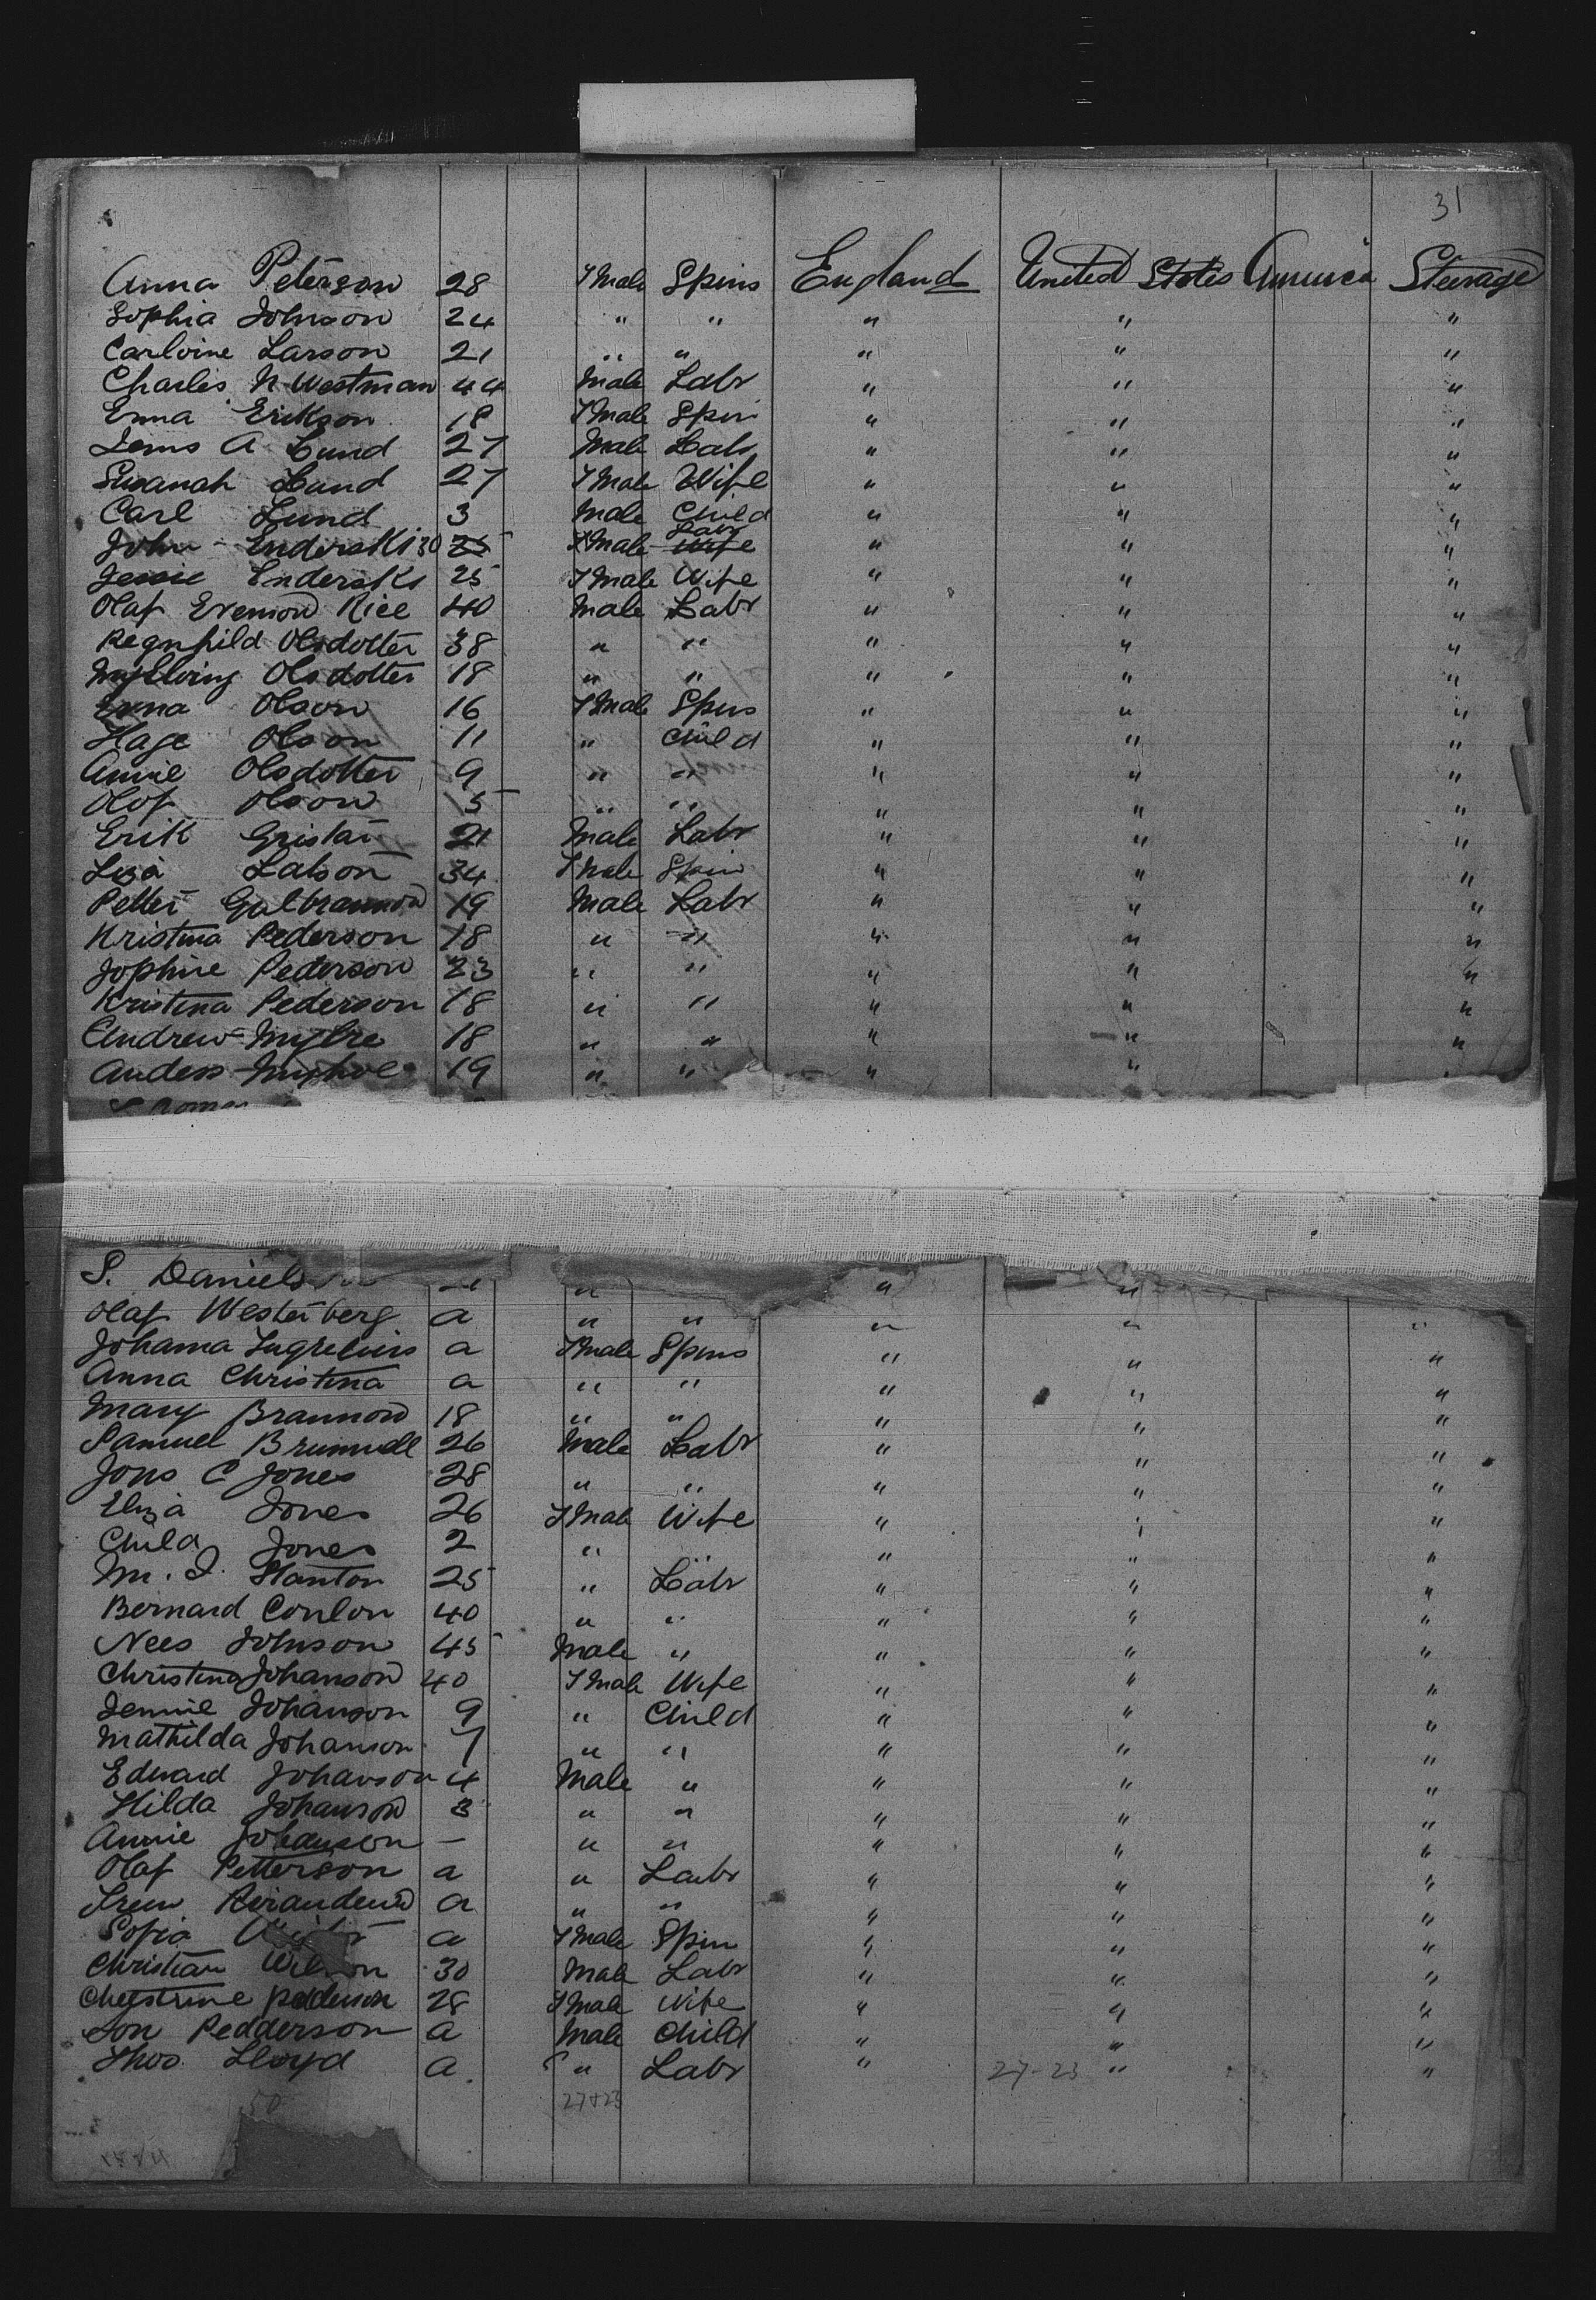 31
Anna Peterson 28 Fmale Spins England United States America Steerage
Sophia Johnson 24 " " " " "
Carloine Larson 21 " " " " "
Charles N Westman 44 Male Labr " " "
Emma Erikson 18 Fmale Spin " " "
Jems A Lund 27 Male Labr " " "
Susanah Lund 27 Fmale Wife " " "
Carl Lund 3 Male Child " " "
John Enderski 30 25 Fmale Labr Wife " " "
Jessie Enderski 25 Fmale Wife " " "
Olaf Evenson Rice 40 Male Labr " " "
Regnhild Olsdotter 38 " " " " "
Olsdotter 18 " " " " "
Emma Olson 16 Fmale Spins " " "
Hage Olson 11 " Child " " "
Annie Olsdotter 9 " " " " "
Olof Olson 5 " " " " "
Erik 21 Male Labr " " "
Lisa Latson 34 Fmale Spin " " "
Petter 19 Male Labr " " "
Kristina Pederson 18 " " " " "
Jophine Pederson 23 " " " " "
Kristina Pederson 18 " " " " "
Andrew Myhre 18 " " " " "
Anders 19 " " " "
S. Daniels " " "
Olaf Westerberg a " " " " "
Johanna a Fmale Spins " " "
Anna Christina a " " " " "
Mary Brannon 18 " " " " "
Samuel 26 Male Labr " " "
Jons C Jones 28 " " " " "
Eliza Jones 26 Fmale Wife " " "
Child Jones 2 " " " "
M. J. Stanton 25 " Labr " " "
Bernard Conlon 40 " " " " "
Nees Johnson 45 Male " " " "
Christina Johanson 40 Fmale Wife " " "
Jennie Johanson 9 " Child " " "
Mathilda Johanson 7 " " " " "
Edward Johanson 4 Male " " " "
Hilda Johanson 3 " " " " "
Annie Johanson — " " " " "
Olaf Petterson a " Labr " " "
a " " " " "
Sofia a Fmale Spin " " "
Christian Wilson 30 Male Labr " " "
Chrestine Pedderson 28 Fmale Wife " " "
Son Pedderson a Male Child " " "
Thos. Lloyd a " Labr " 27-23 " "
50 27+23